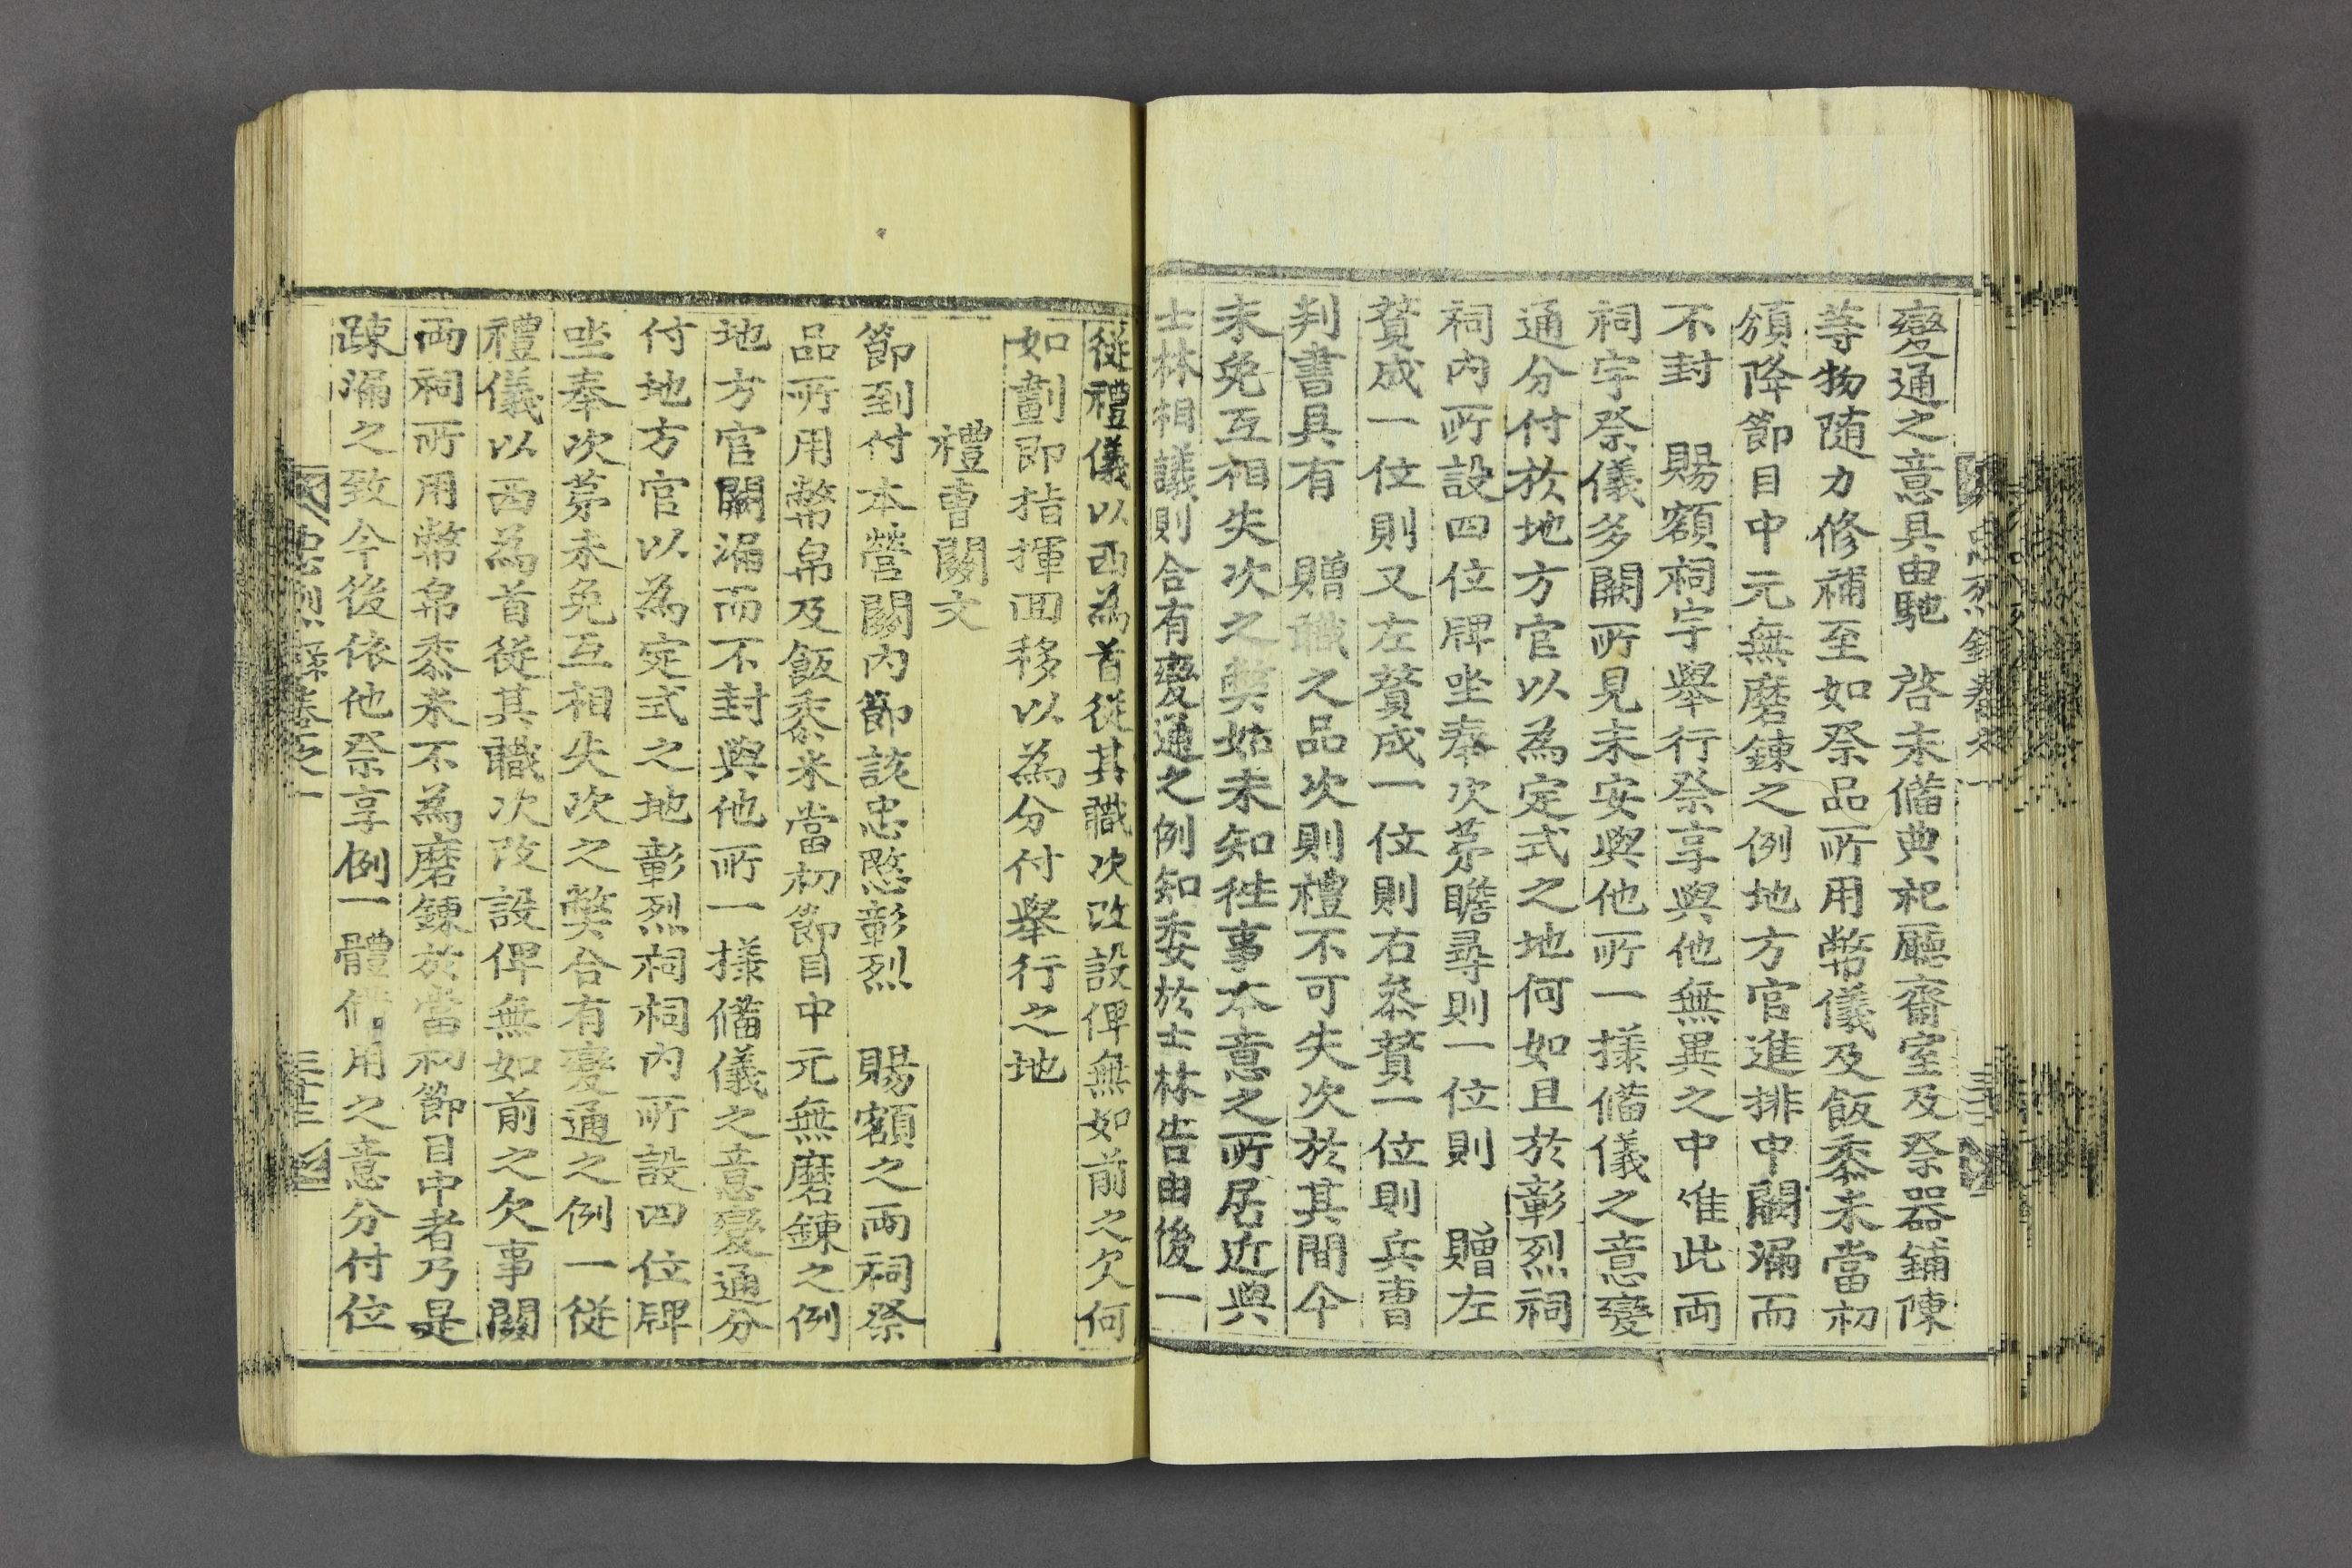 變通之意具由馳 啓未備典祀廳齋室及祭器鋪陳
等物随力修補至如祭品所用幣儀及飯黍米當初
頒降節目中元無磨鍊之例地方官進排中闕漏而
不封 賜額祠宇舉行祭享與他無異之中惟此両
祠宇祭儀多闕所見未安與他所一㨾備儀之意變
通分付於地方官以為定式之地何如且於彰烈祠
祠內所設四位牌坐奉次茅瞻尋則一位則 贈左
賛成一位則又左賛成一位則右叅賛一位則兵曺
判書具有 贈職之品次則禮不可失次於其間今
未免互相失次之獘姑未知徃事本意之所居近與
士林相議則合有變通之例知委於士林告由後一
從禮儀以西為首從其職次改設俾無如前之欠何
如劃即指揮回移以為分付舉行之地
禮曺關文
節到付本營關內節該忠愍彰烈 賜額之両祠祭
品所用幣帛及飯黍米當初節目中元無磨鍊之例
地方官闕漏而不封與他所一㨾備儀之意變通分
付地方官以為定式之地彰烈祠祠內所設四位牌
坐奉次茅未免互相失次之獘合有變通之例一從
禮儀以西為首從其職次改設俾無如前之欠事關
両祠所用幣帛黍米不為磨鍊於當初節目中者乃是
踈漏之致今後依他祭享例一體備用之意分付位
忠烈錄卷之一